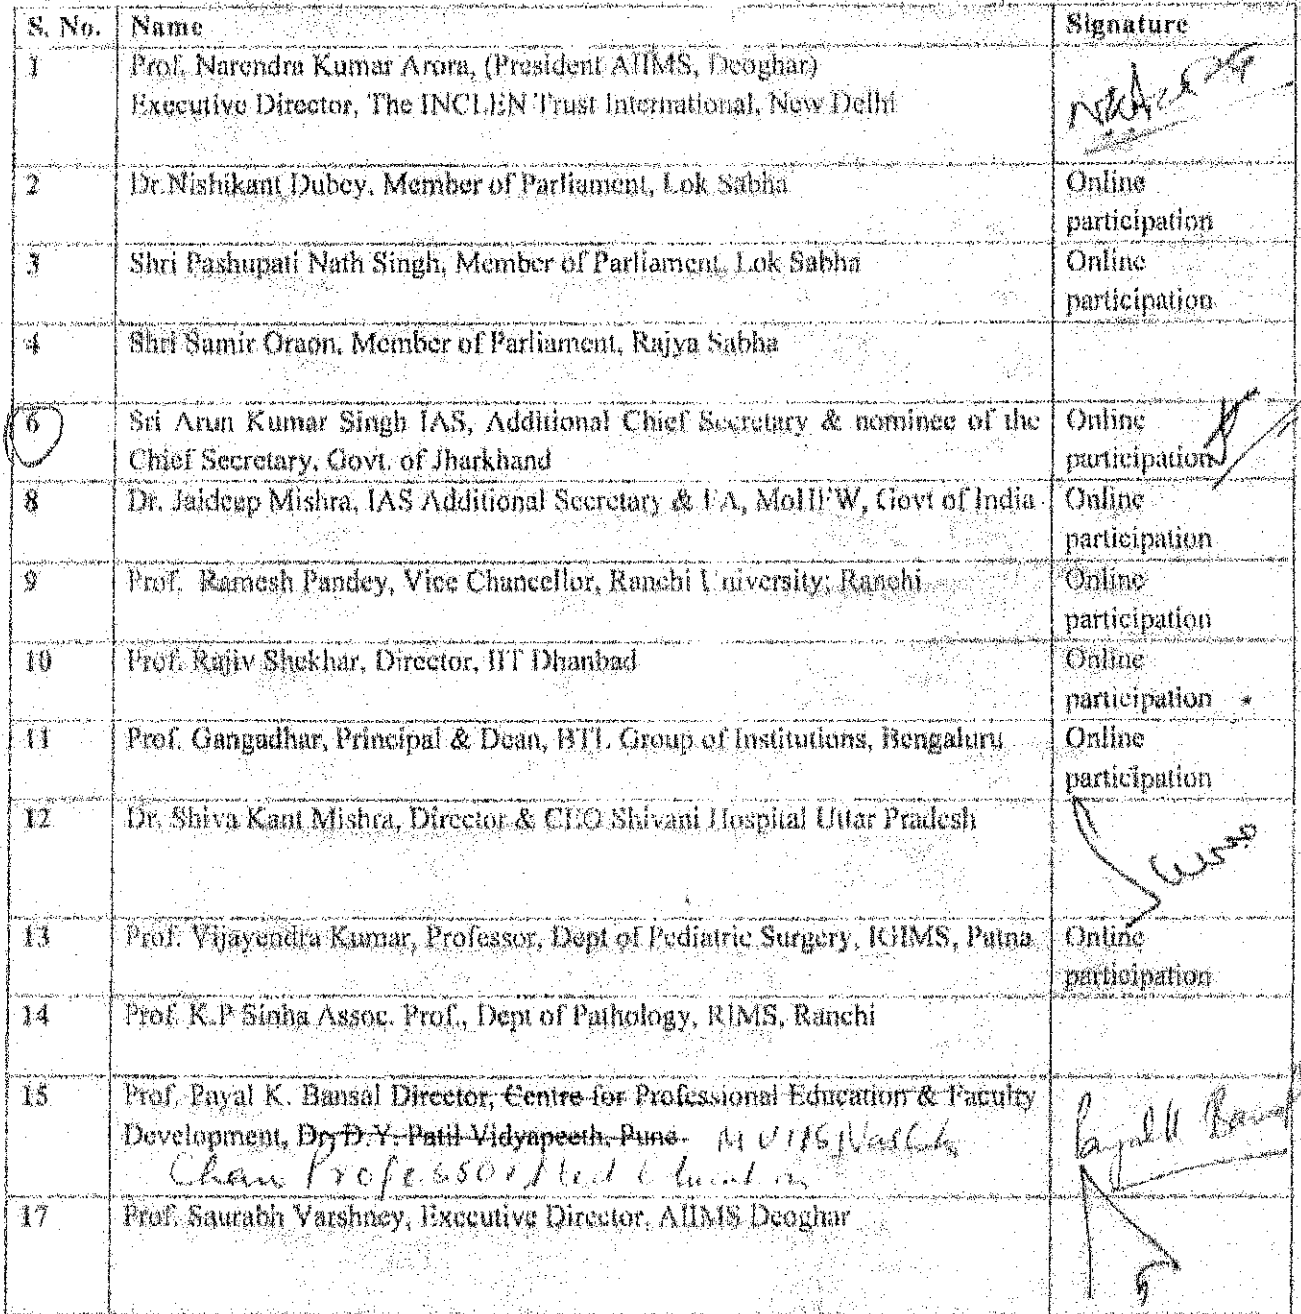 S. No. Name Signature
1 Prof. Narendra Kumar Arora, (President AIIMS, Deoghar)
Executive Director, The INCLEN Trust International, New Delhi
2 Dr.Nishikant Dubey, Member of Parliament, Lok Sabha Online
participation
3 Shri Pashupati Nath Singh, Member of Parliament, Lok Sabha Online
participation
4 Shri Samir Oraon, Member of Parliament, Rajya Sabha
6 Sri Arun Kumar Singh IAS, Additional Chief Secretary & nominee of the Online
Chief Secretary, Govt. of Jharkhand participation
8 Dr. Jaideep Mishra, IAS Additional Secretary & FA, MoHFW, Govt of India Online
participation
9 Prof. Ramesh Pandey, Vice Chancellor, Ranchi University, Ranchi Online
participation
10 Prof. Rajiv Shekhar, Director, IIT Dhanbad Online
participation
11 Prof. Gangadhar, Principal & Dean, BTL Group of Institutions, Bengaluru Online
participation
12 Dr. Shiva Kant Mishra, Director & CEO Shivani Hospital Uttar Pradesh
13 Prof. Vijayendra Kumar, Professor, Dept of Pediatric Surgery, IGIMS, Patna Online
participation
14 Prof. K.P Sinha Assoc. Prof., Dept of Pathology, RIMS, Ranchi
15 Prof. Payal K. Bansal Director, Centre for Professional Education & Faculty Payal K Bansal
Development, Dr. D.Y. Patil Vidyapeeth, Pune.
Professor
17 Prof. Saurabh Varshney, Executive Director, AIIMS Deoghar